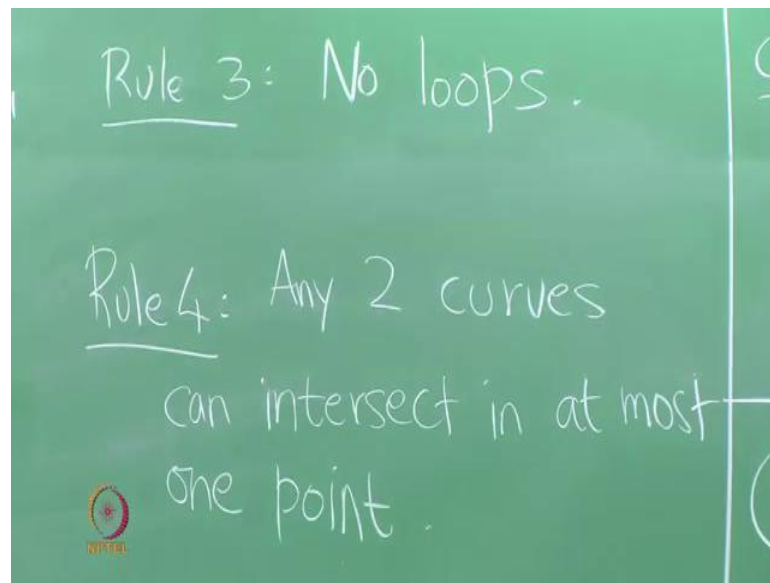 Rule 3: No loops.
Rule 4: Any 2 curves
can intersect in at most
one point.
NPTEL